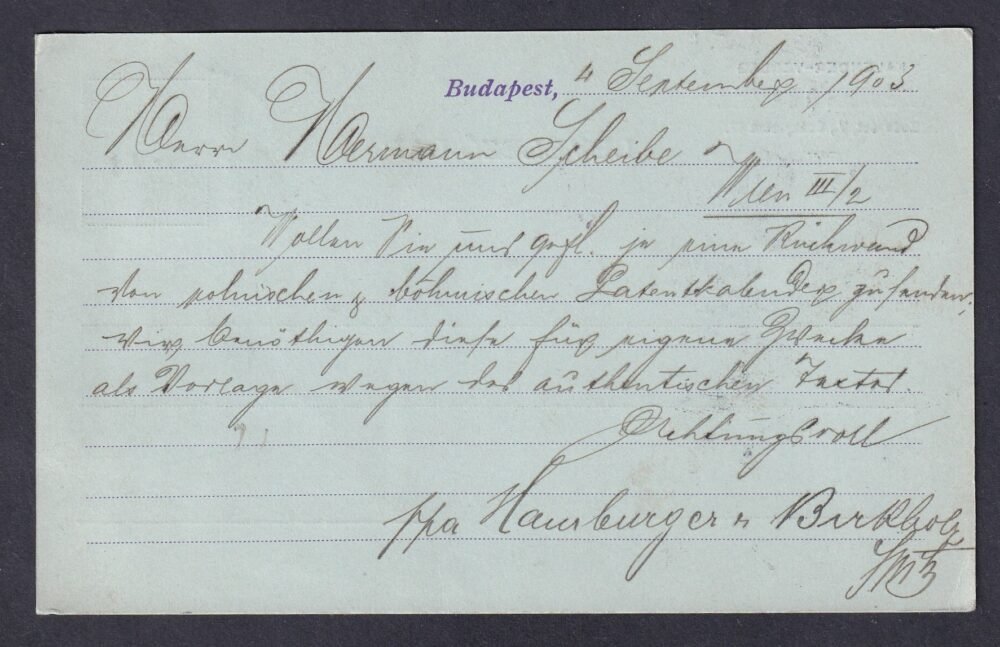 Budapest, 4 September 1903.
Herrn Hermann Scheibe
Wien III/2
Wollen Sie uns gefl. je eine Rückwand
von polnischen & böhmischen Patentkalender zusenden,
wir benöthigen diese für eigene Zwecke
als Vorlage wegen des authentischen Textes.
Achtungsvoll
ppa Hamburger & Birkholz